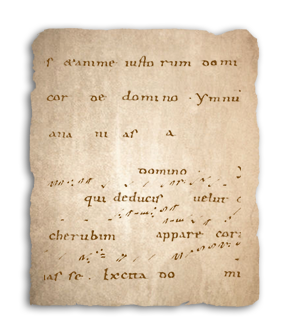 s &anime iusto rum domi
cor de domino · Ymnu
ana ni as a
domino
qui deducis uelut
cherubim appare cor
ias se. Excita do mi